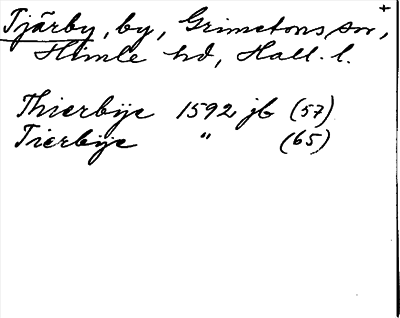 +
Tjärby, by, Grimetons sn,
Himle hd, Hall. l.
Thierbije 1592 jb (57)
Tierbije " (65)